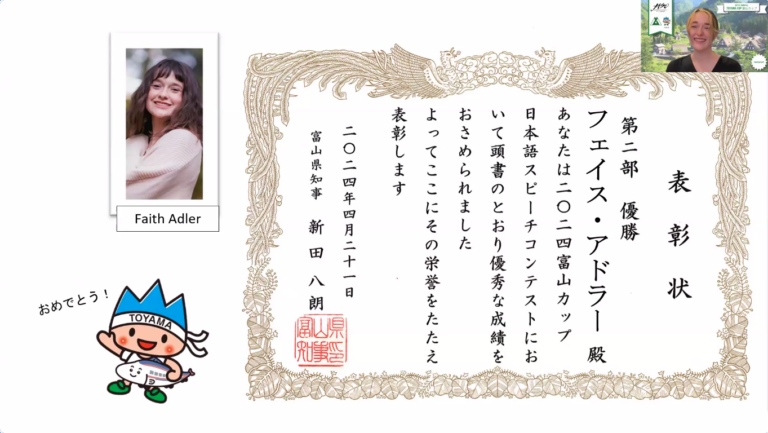 Faith Adler
おめでとう！
TOYAMA
表彰状
第二部 優勝
フェイス・アドラー 殿
あなたは二〇二四富山カップ
日本語スピーチコンテストにお
いて頭書のとおり優秀な成績を
おさめられました
よってここにその栄誉をたたえ
表彰します
二〇二四年四月二十一日
富山県知事 新田 八朗
富山県知事印